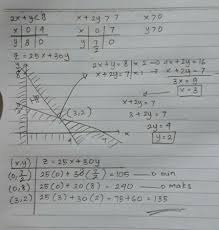 2x + y ≤ 8   x + 2y ≥ 7   x ≥ 0
x | 0 | 4   x | 0 | 7   y ≥ 0
y | 8 | 0   y | 7/2 | 0
Z = 25x + 30y
2x + y = 8 | x 2 | 4x + 2y = 16
x + 2y = 7 | x 1 | x + 2y = 7
3x = 9
x = 3
x + 2y = 7
3 + 2y = 7
2y = 4
y = 2
(3,2)
(x,y) | Z = 25x + 30y
(0, 7/2) | 25(0) + 30(7/2) = 105 → 0 min
(0,8) | 25(0) + 30(8) = 240 → 0 maks
(3,2) | 25(3) + 30(2) = 75 + 60 = 135